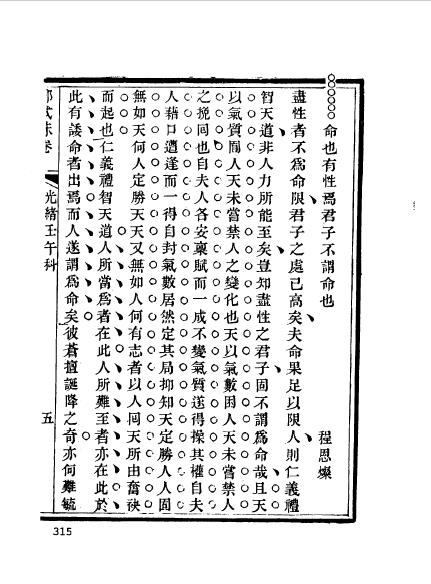 命也有性焉君子不謂命也 程恩燦
盡性者不爲命限君子之處己高矣夫命果足以限人則仁義禮
智天道非人力所能至矣豈知盡性之君子固不謂爲命哉且天
以氣質囿人天未嘗禁人之變化也天以氣數困人天未嘗禁人
之挽囘也自夫人各安稟賦而一成不變氣質遂得操其權自夫
人藉口遭逢而一得自封氣數居然定其局抑知天定勝人人固
無如天何人定勝天天又無如人何有志者以人囘天所由奮袂
而起也仁義禮智天道人所當爲者在此人所難至者亦在此於
此有諉命者出焉而人遂謂爲命矣彼蒼擅誕降之奇亦何難毓
試硃卷 光緒壬午科 五
315